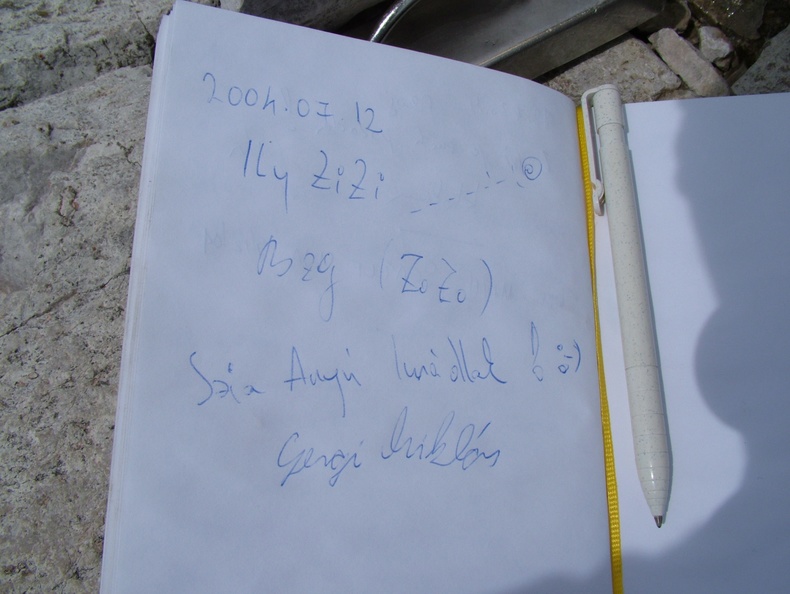 2004.07.12
Ily ZiZi
Bzg (ZoZo)
Szia Anyu Imádlak :)
Gergi Miklós